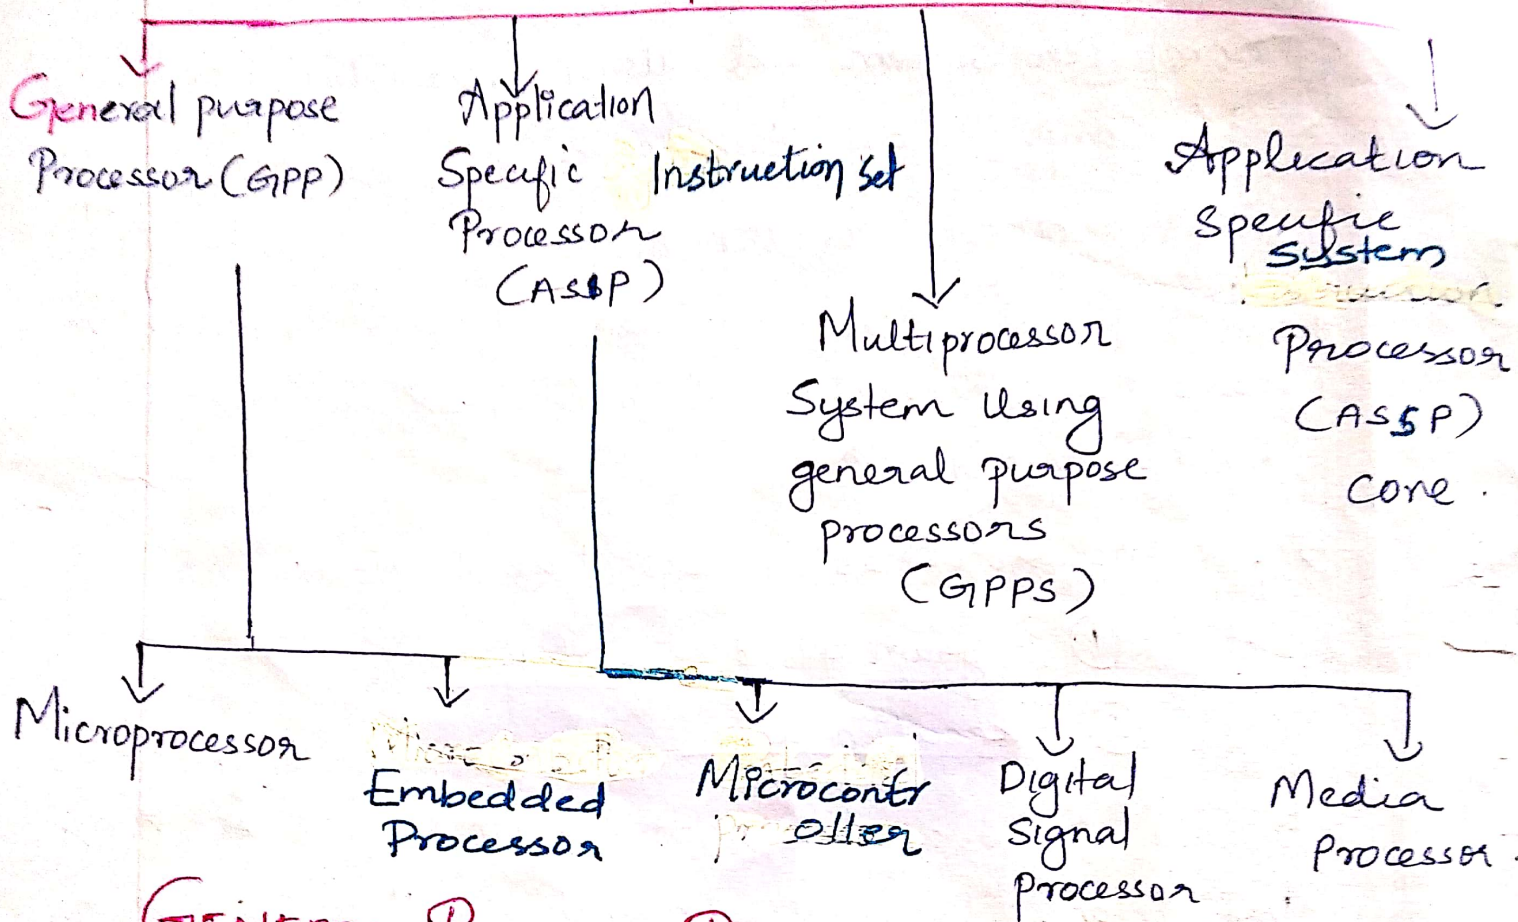 General purpose
Processor (GPP)
Application
Specific Instruction set
Processor
Multiprocessor
System Using
general purpose
processors
(GPPS)
Application
Specific
System
Processor
(ASSP)
Core.
Microprocessor
Embedded
Processor
Microcontr
oller
Digital
Signal
Processor
Media
Processor.